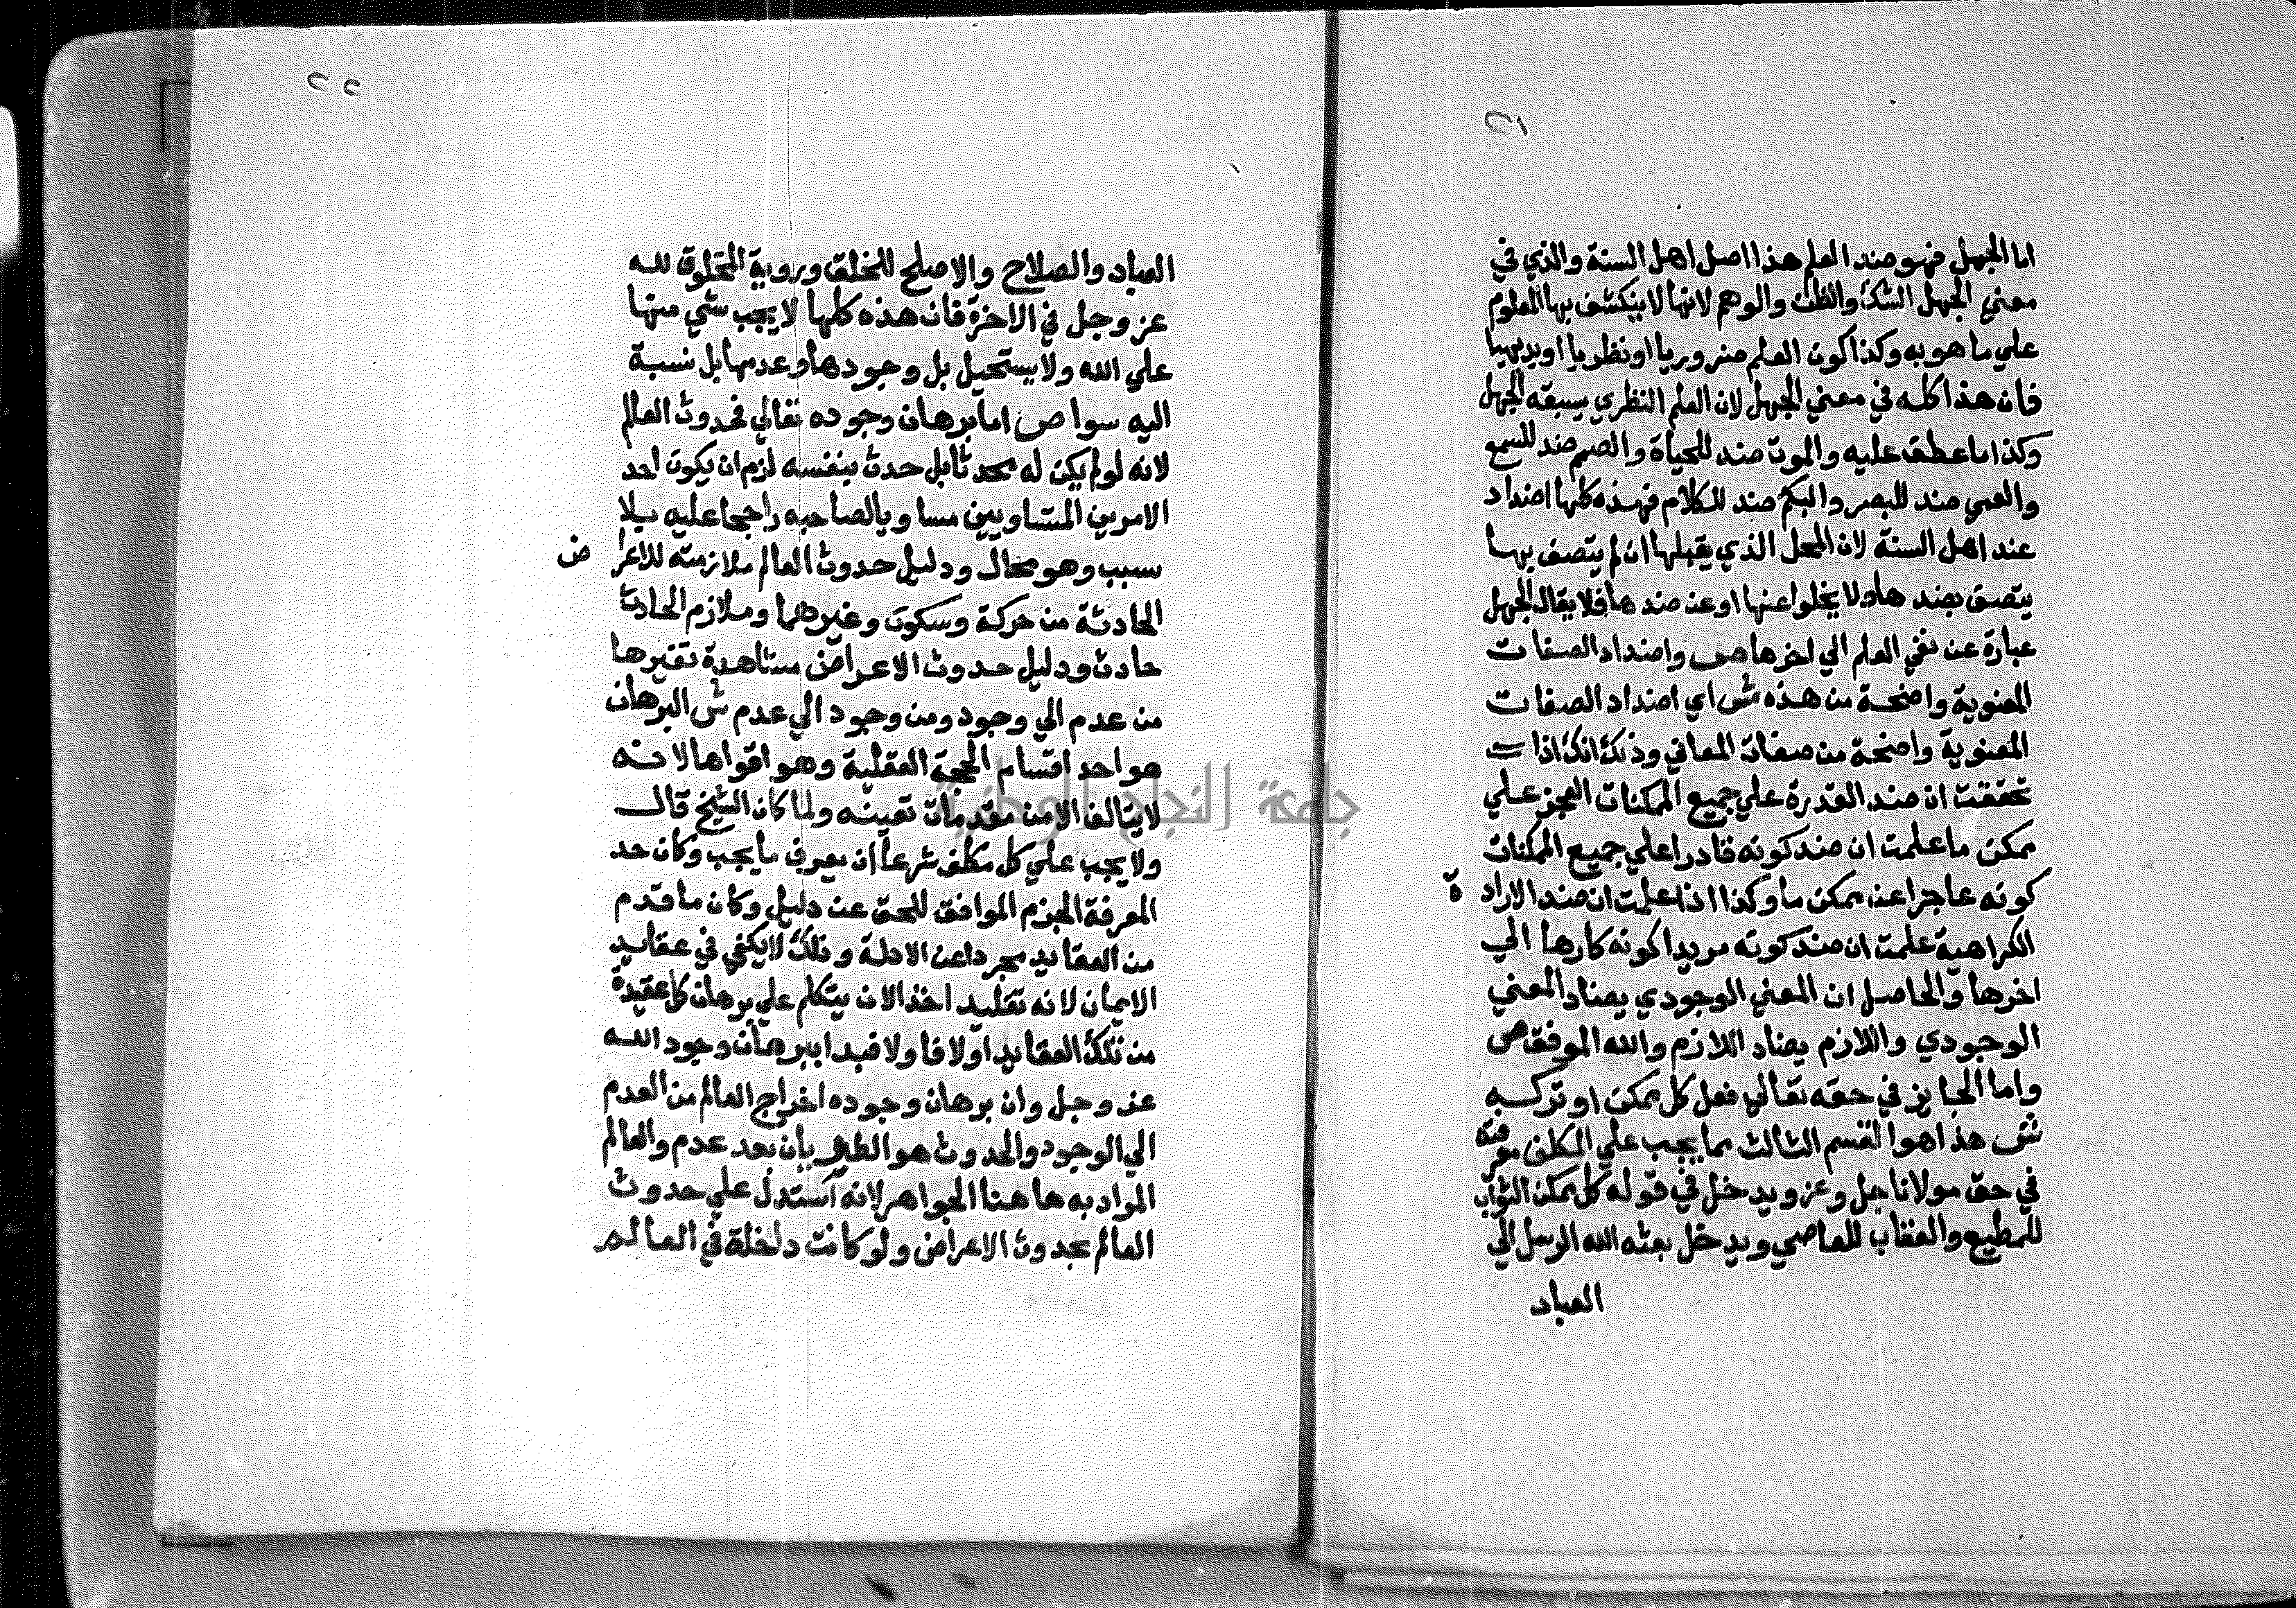 ٢١
اما الجهل فهو ضد العلم هذا اصل اهل السنة والذي في
معني الجهل الشك والظن والوهم لانها لا ينكشف بها المعلوم
علي ما هو به وكذا كون العلم ضروريا او نظريا او بديهيا
فان هذا كله في معني الجهل لان العلم النظري يسبقه الجهل
وكذا ما عطف عليه والموت ضد للحياة والصم ضد للسمع
والعمي ضد للبصر والبكم ضد للكلام فهذه كلها اضداد
عند اهل السنة لان المحل الذي يقبلها ان لم يتصف بها
يتصف بضدها ولا يخلوا عنها او عن ضدها فلا يقال الجهل
عبارة عن نفي العلم الي اخرها ص واضداد الصفات
المعنوية واضحة من هذه ش اي اضداد الصفات
المعنوية واضحة من صفات المعاني وذلك انك اذا
تحققت ان ضد القدرة علي جميع الممكنات العجز علي
ممكن ما علمت ان ضد كونه قادرا علي جميع الممكنات
كونه عاجزا عن ممكن ما وكذا اذا علمت ان ضد الارادة
الكراهية علمت ان ضد كونه مريدا كونه كارها الي
اخرها والحاصل ان المعني الوجودي يضاد المعني
الوجودي واللازم يضاد اللازم والله الموفق ص
واما الجايز في حقه تعالي فعل كل ممكن او تركه
ش هذا هو القسم الثالث مما يجب علي المكلف معرفته
في حق مولانا جل وعز ويدخل في قوله كل ممكن الثواب
للمطيع والعقاب للعاصي ويدخل بعثه الله الرسل الي
العباد
٢٢
العباد والصلاح والاصلح للخلق وروية المخلوق لله
عز وجل في الاخرة فان هذه كلها لا يجب شي منها
علي الله ولا يستحيل بل وجودها وعدمها بل نسبة
اليه سوا ص اما برهان وجوده تعالي فحدوث العالم
لانه لو لم يكن له محدث بل حدث بنفسه لزم ان يكون احد
الامرين المتساويين مساويا لصاحبه راجحا عليه بلا
سبب وهو محال ودليل حدوث العالم ملازمته للاعراض
الحادثة من حركة وسكون وغيرهما وملازم الحادث
حادث ودليل حدوث الاعراض مشاهدة تغيرها
من عدم الي وجود ومن وجود الي عدم ش البرهان
هو احد اقسام الحجة العقلية وهو اقواها لانه
لا يتالف الا من مقدمات تقينه ولما كان الشيخ قال
ولا يجب علي كل مكلف شرعا ان يعرف ما يجب وكان حد
المعرفة الجزم الموافق للحق عن دليل وكان ما قدم
من العقايد مجردا عن الادلة وذلك لا يكفي في عقايد
الايمان لانه تقليد اخذ الان يتكلم علي برهان كل عقيدة
من تلك العقايد اولا فاولا فبدا ببرهان وجود الله
عز وجل وان برهان وجوده اخراج العالم من العدم
الي الوجود والحدوث هو بان بعد عدم والعالم
المواد به ها هنا الجواهر لانه استدل علي حدوث
العالم بحدوث الاعراض ولو كانت داخلة في العالم
جامعة النجاح الوطنية